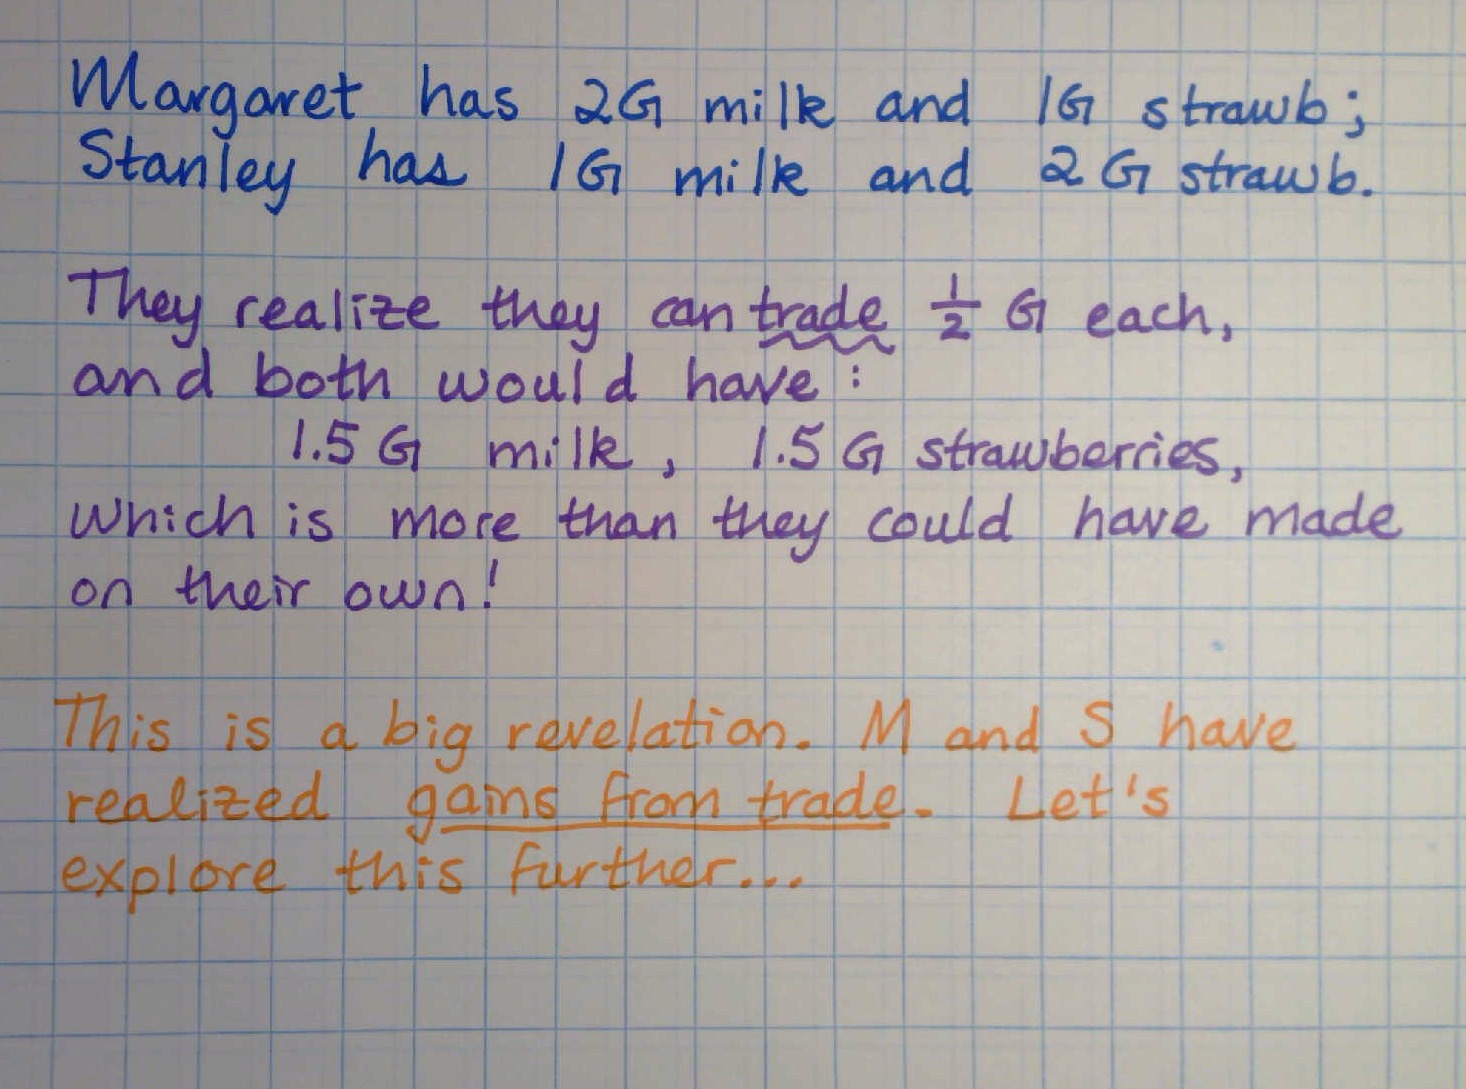 Margaret has 2G milk and 1G strawb;
Stanley has 1G milk and 2G strawb.
They realize they can trade 1/2 G each,
and both would have:
1.5 G milk, 1.5 G strawberries,
which is more than they could have made
on their own!
This is a big revelation. M and S have
realized gains from trade. Let's
explore this further...